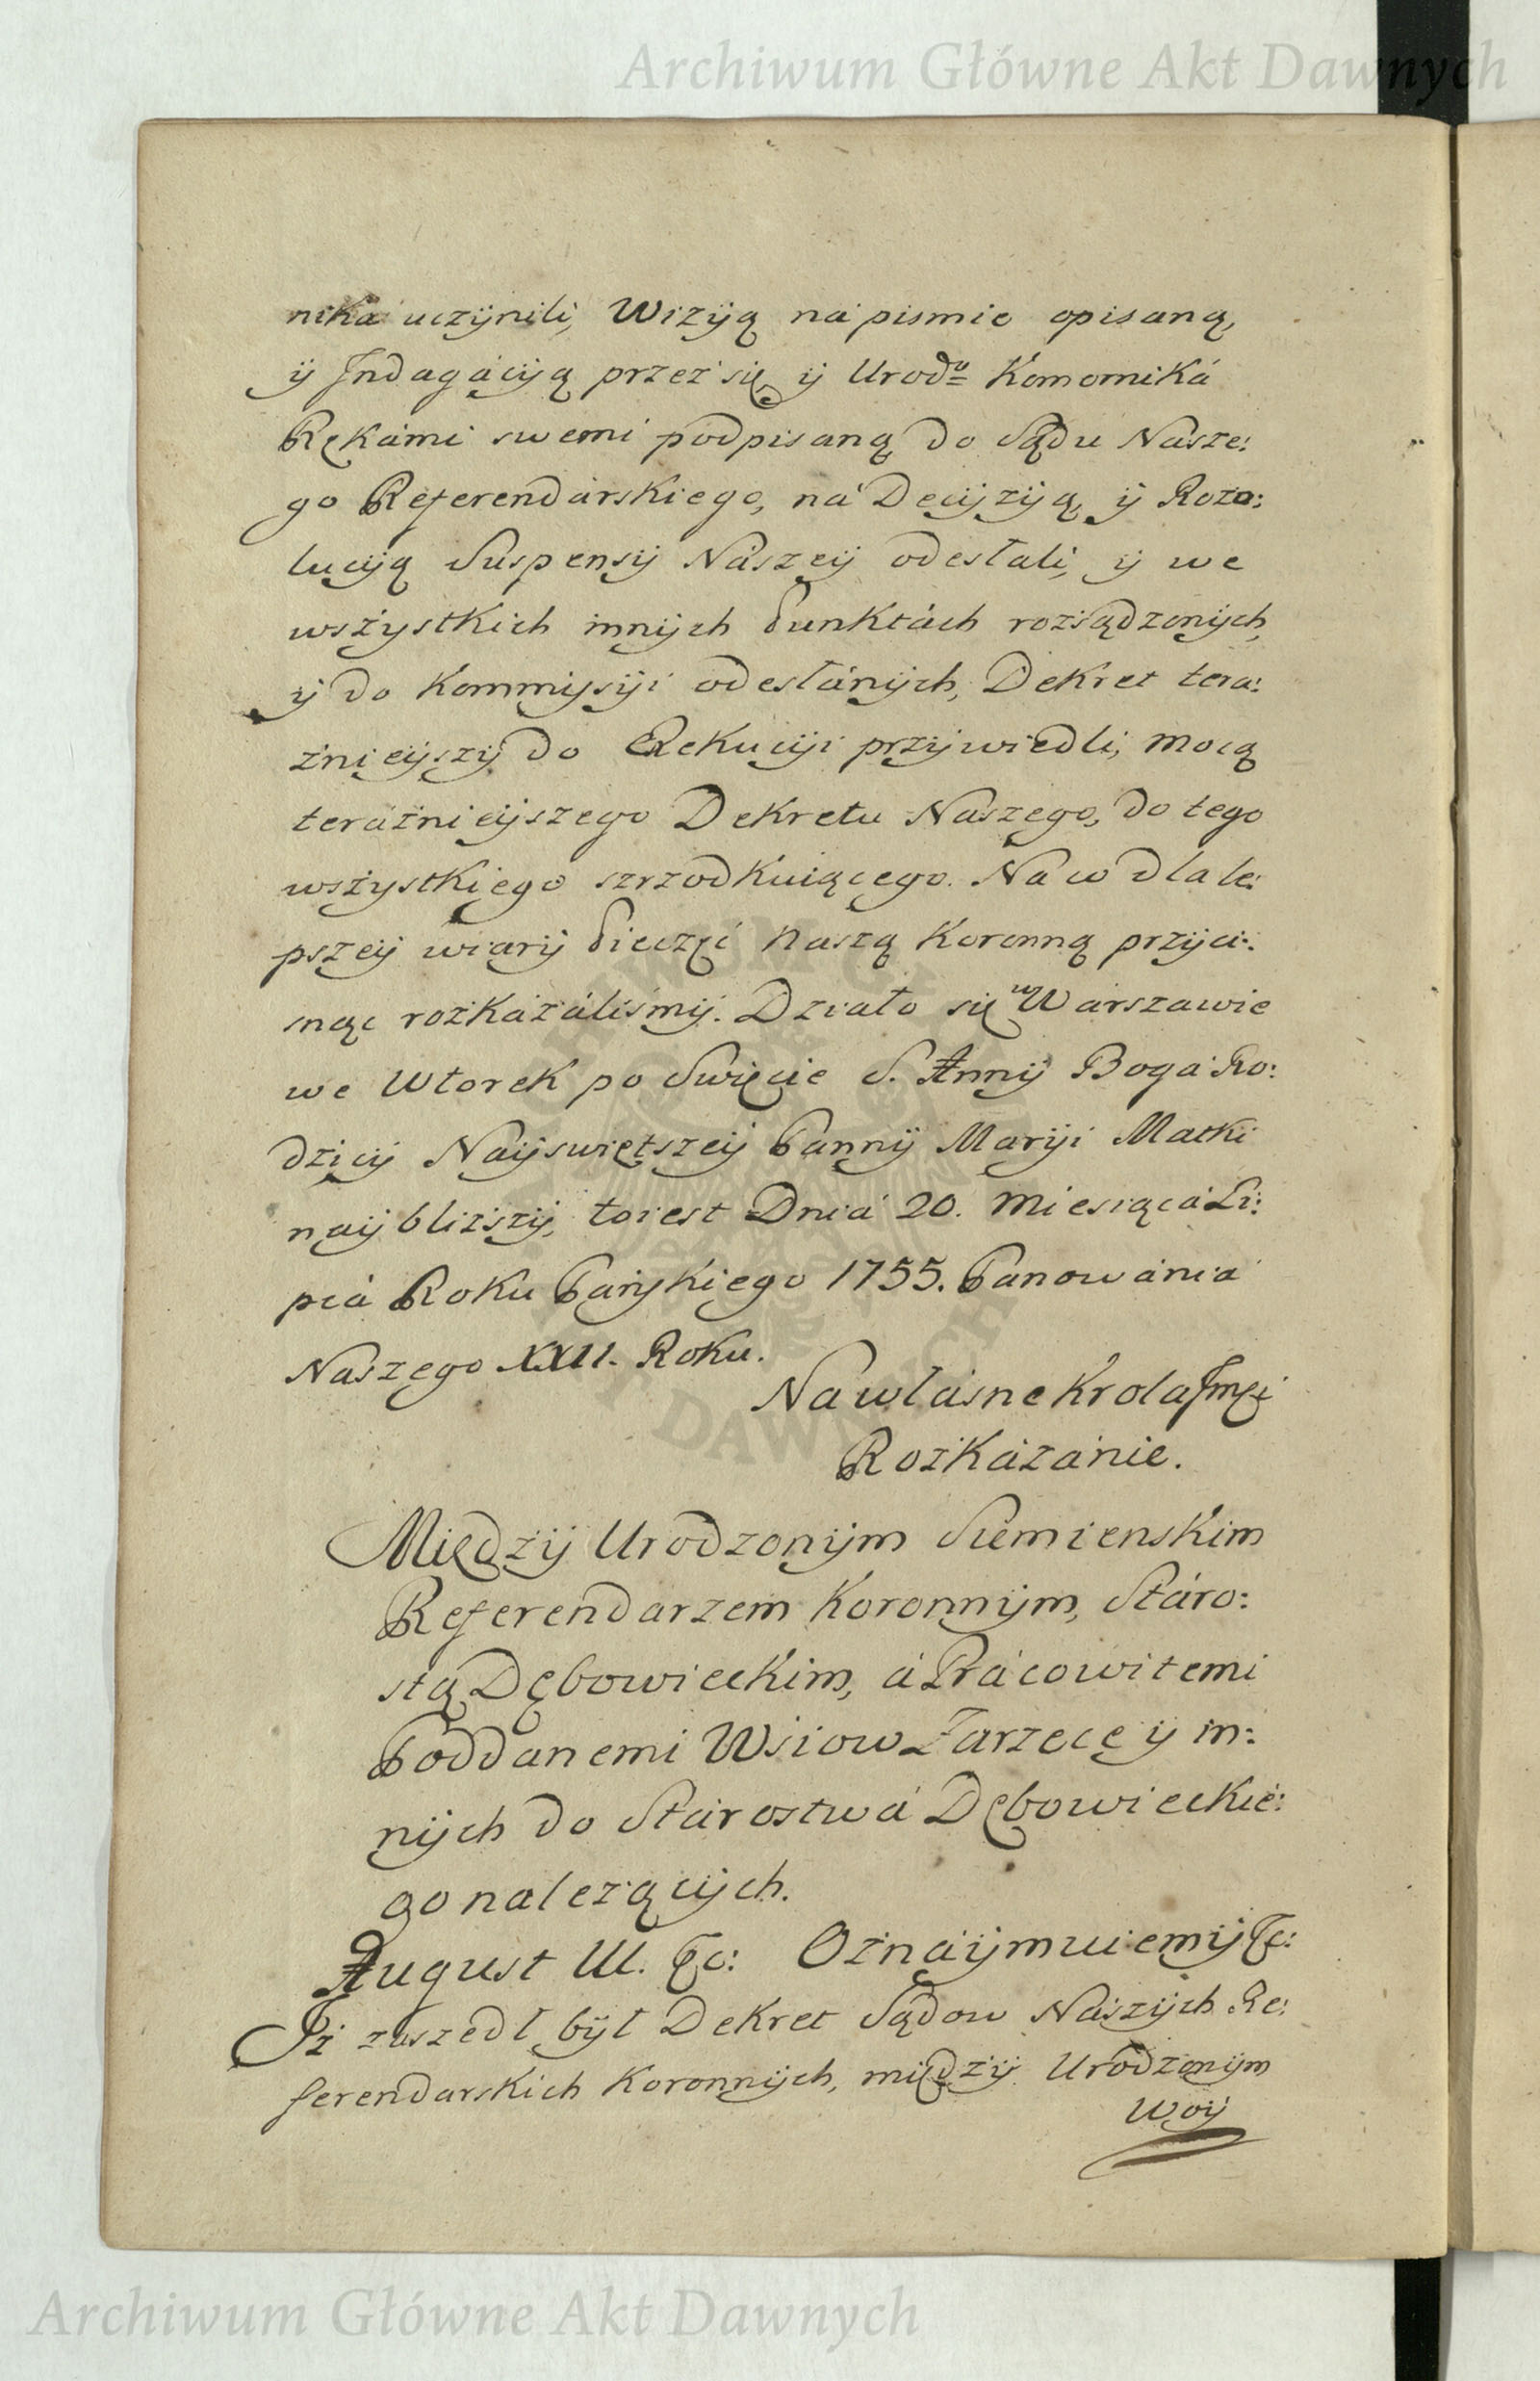 Archiwum Główne Akt Dawnych
nika uczÿnili, Wizÿą ná pismie opisaną,
ÿ Indagácÿą przez się, ÿ Urodᵒ Komorniká
Rękámi swemi podpisaną do Sądu Násze:
go Referendárskiego, ná Decÿzÿą, ÿ Rozo:
lucÿą Suspensÿ Nászeÿ odesłali, ÿ we
wszÿstkich innÿch Punktách rozsądzonÿch,
ÿ do Kommisÿi odesłánÿch, Dekret tera:
znieÿszÿ do Exekucÿi przÿwiedli, mocą
teráznieÿszego Dekretu Nászego, do tego
wszÿstkiego szrzodkuiącego. Ná co dla le:
pszeÿ wiarÿ Pieczęć Naszą Koronną przÿci:
snąc rozkázálismÿ. Działo się w Wárszawie
we Wtorek po Swięcie S. Annÿ Boga Ro:
dzicÿ Naÿswiętszeÿ Pannÿ Marÿi Matki
naÿbliższÿ, to iest Dniá 20. Miesiącá Li:
pcá Roku Pańskiego 1755. Panowánia
Naszego XXII. Roku.
Na włásne Krola Jmci
Rozkázánie.
Międzÿ Urodzonÿm Siemienskim
Referendarzem Koronnÿm, Stáro:
stą Dębowieckim, á Prácowitemi
Poddanemi Wsiow Zarzece ÿ in:
nÿch do Stárostwá Dębowieckie:
go nalezącÿch.
August III. &c: Oznáÿmuiemÿ &c:
Jż zaszedł bÿł Dekret Sądow Nászÿch Re:
ferendarskich Koronnÿch, międzÿ Urodzonÿm
Woÿ
Archiwum Główne Akt Dawnych